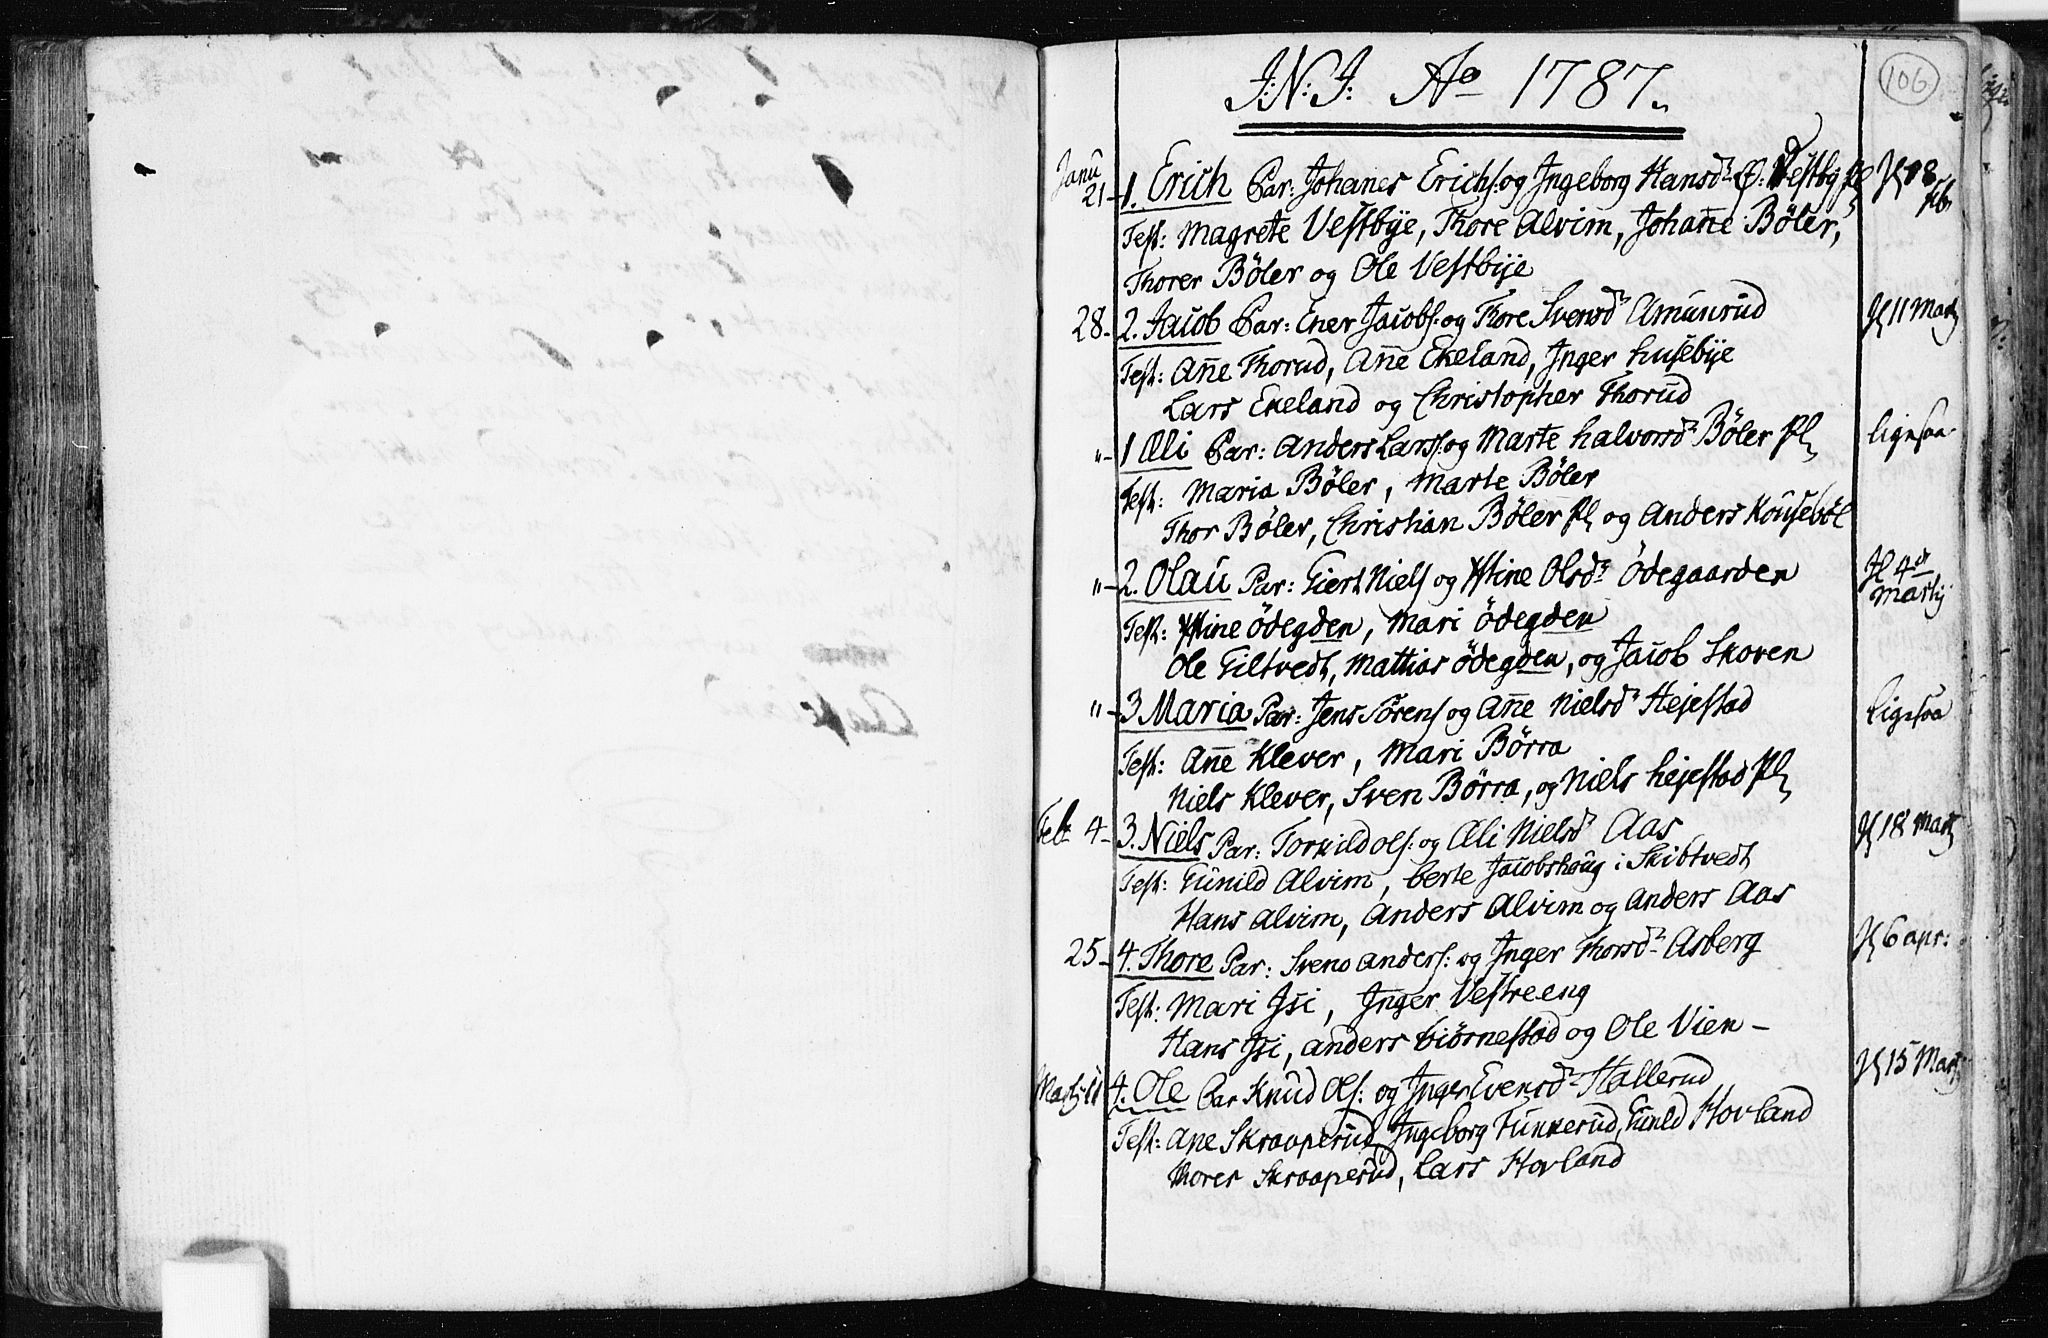 J: N: J: Ao 1787.
106
Janu 21 - 1. Erich Par: Johanes Erichs: og Ingeborg Hansdr Ø: Vestby pl Jl 18 Feb
Test: Magrete Vestbye, Thore Alvim, Johañe Böler,
Thorer Böler og Ole Vestbye
28 - 2. Jacob Par: Ener Jacobs: og Thore Svensdr Amunrud Jl 11 Marty
Test: Añe Thorud, Añe Ekeland, Inger husebye
Lars Ekeland og Christopher Thorud
" - 1 Æli Par: Anders Larss: og Marte halvorsdr Böler Pl ligesaa
Test: Maria Böler, Marte Böler
Thor Böler, Christian Böler Pl og Anders Kousebøl
" - 2. Olau Par: Giert Niels og Stine Olsdr Ödegaarden Jl 4de Martij
Test: Stine ödegden, Mari ödegden
Ole Giltvedt, Mattias ödegden, og Jacob Skoven
" - 3 Maria Par: Jens Sörens og Añe Nielsdr Hejestad ligesaa
Test: Añe Klever, Mari Börra
Niels Klever, Sven Börra, og Niels hejestad Pl
Febr 4 - 3. Niels Par: Torkild ols: og Æli Nielsdr Aas Jl 18 Marty
Test: Gunild Alvim, berte Jacobshaug i Skibtvedt
Hans Alvim, Anders Alvim og Anders Aas
25 - 4. Thore Par: Sveno anders: og Inger Thorsdr Asberg Jl 6 apr:
Test: Mari Isi, Inger Vestreeng
Hans Isi, anders biörnestad og Ole Vien -
Martij 11 4. Ole Par Knud Ols: og Inger Evensdr Hallerud Jl 15 Mart
Test: Ane Skraaperud, Ingeborg Funkerud, Gunild Hovland
Thorer Skraaperud, Lars Hovland